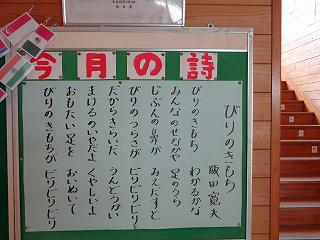 今月の詩
びりのきもち
阪田寛夫
びりのきもち わかるかな
みんなのせなかや 足のうら
じぶんの鼻が みえだすと
びりのつらさが ビリビリビリ
だからきらいだ うんどうかい
まけるのいやだよ くやしいよ
おもたい足を おいぬいて
びりのきもちが ビリビリビリ